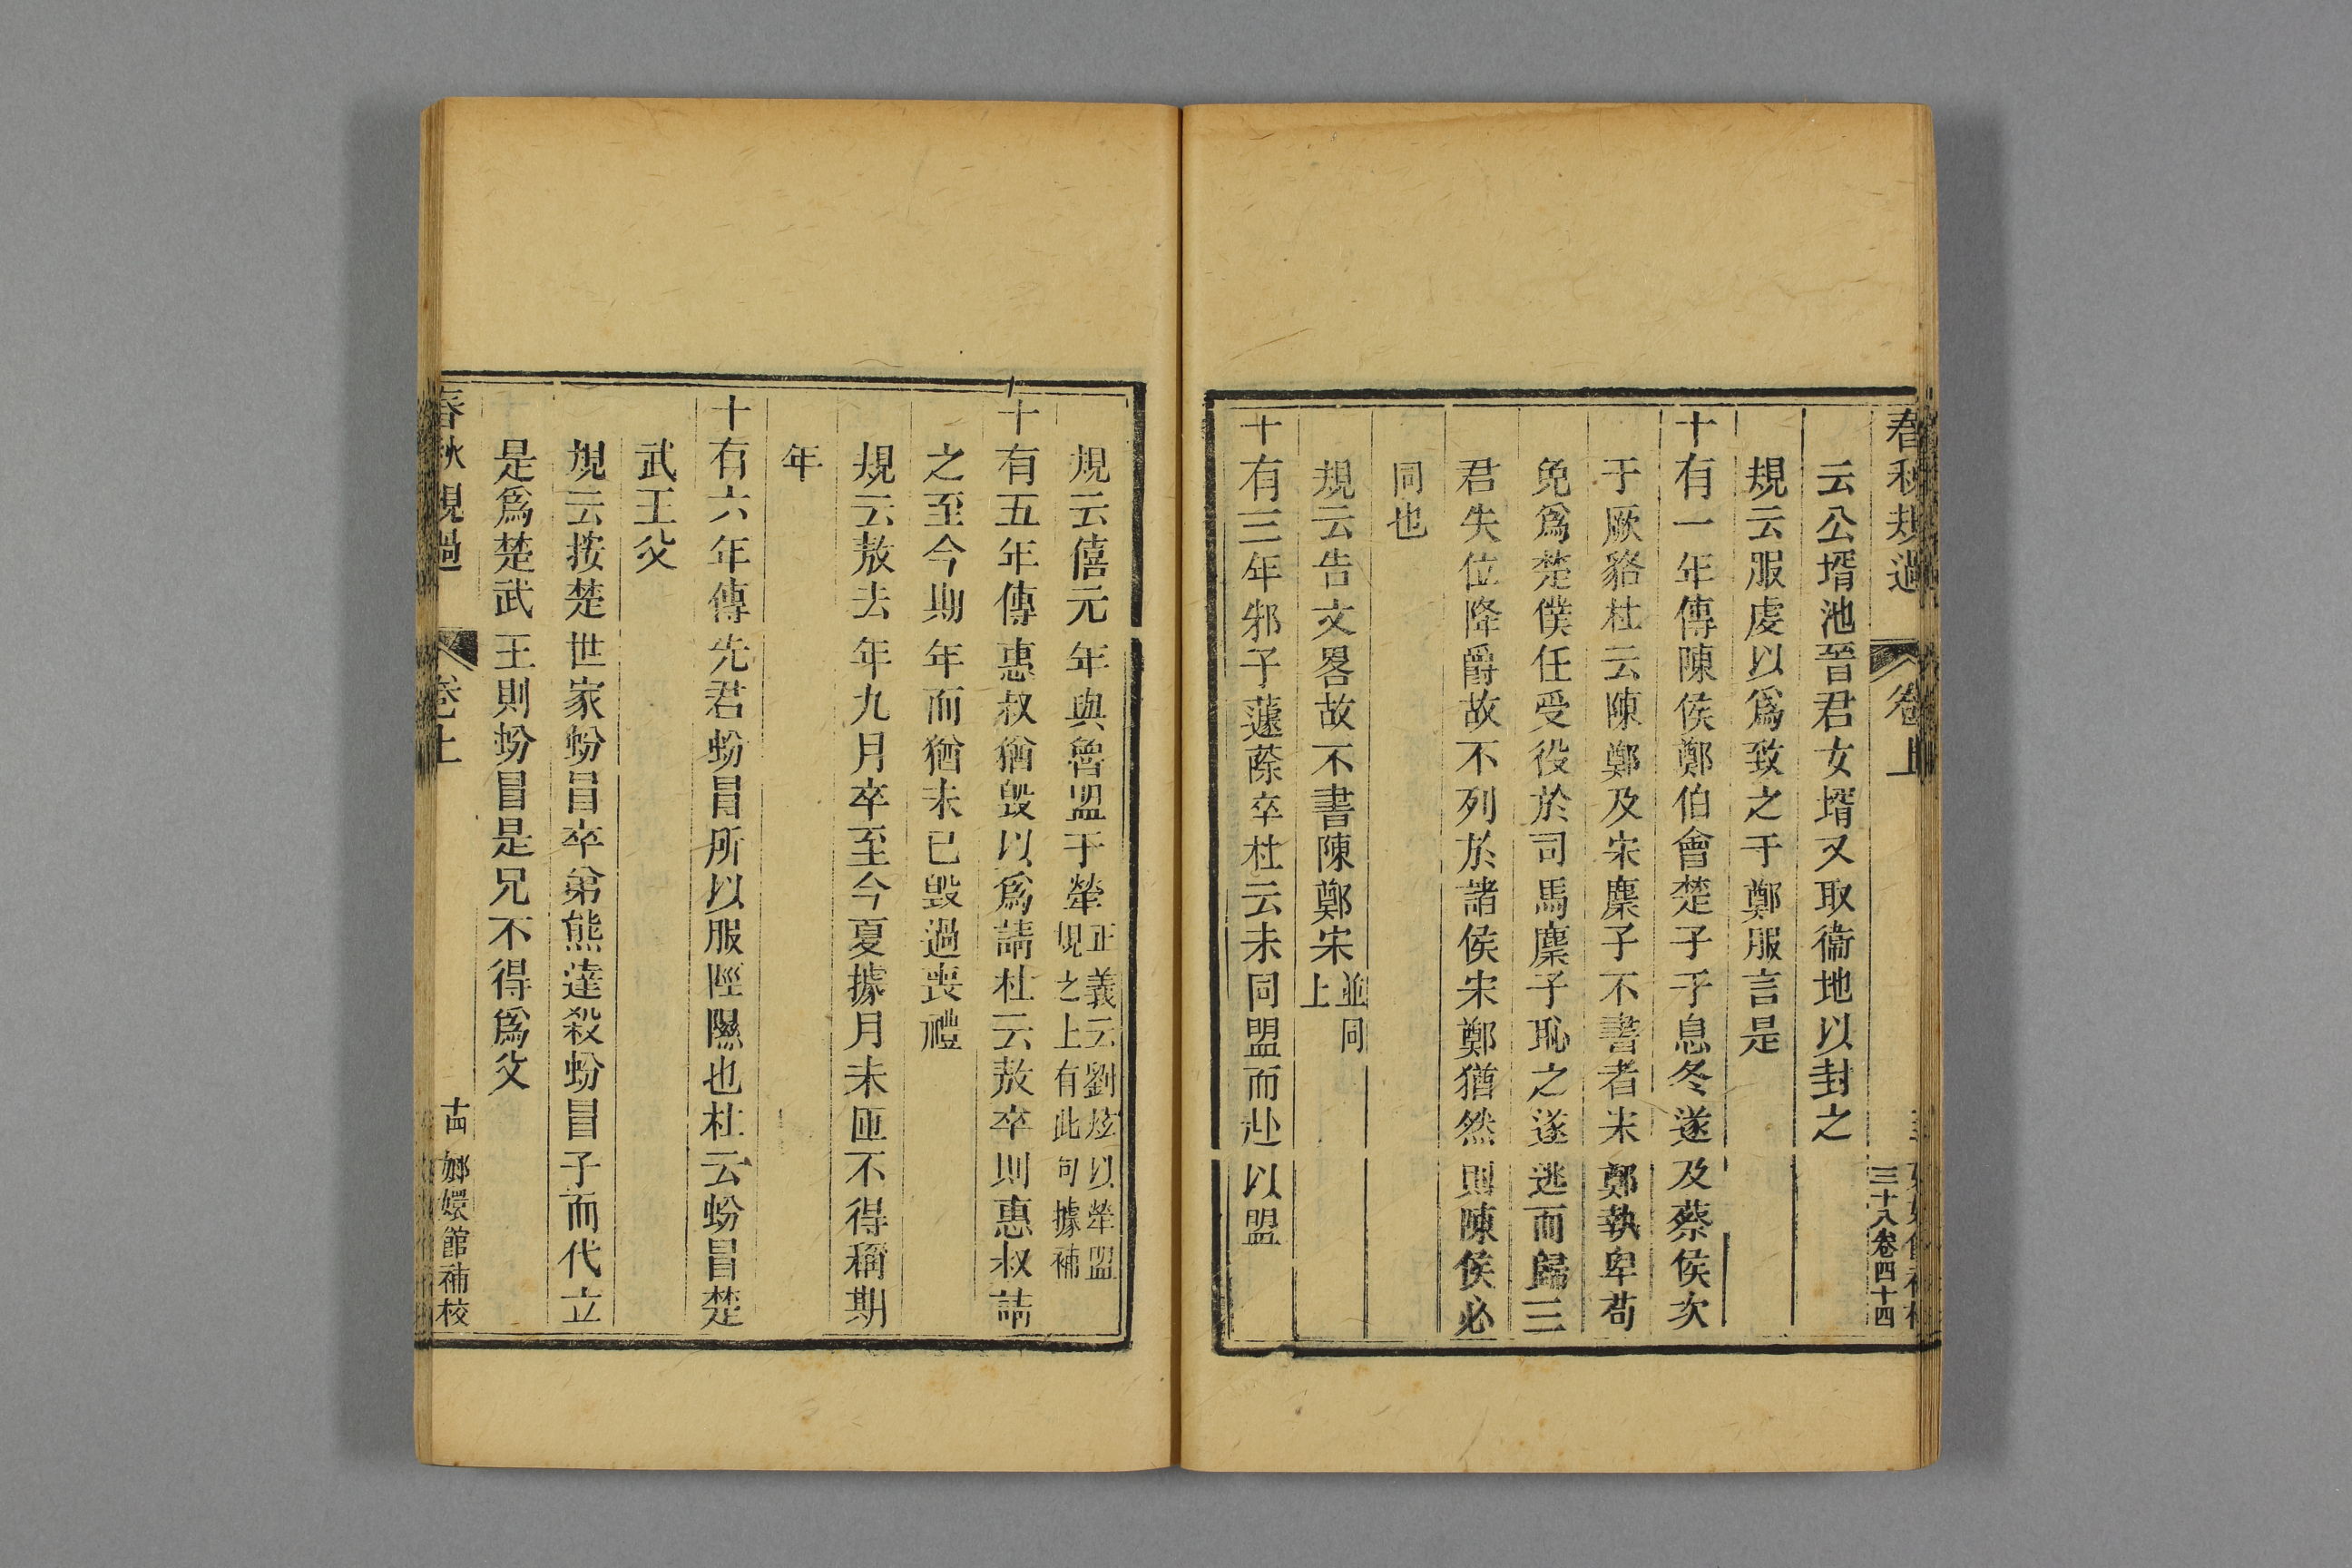 春秋規過 卷上
三十八卷四十四
云公壻池晉君女壻又取衞地以封之
規云服虔以爲致之于鄭服言是
十有一年傳陳侯鄭伯會楚子于息冬遂及蔡侯次
于厥貉杜云陳鄭及宋麇子不書者宋鄭執卑苟
免爲楚僕任受役於司馬麇子恥之遂逃而歸三
君失位降爵故不列於諸侯宋鄭猶然則陳侯必
同也
規云告文畧故不書陳鄭宋並同上
十有三年邾子蘧蒢卒杜云未同盟而赴以盟
規云僖元年與魯盟于犖正義云劉炫以犖盟規之上有此句據補
十有五年傳惠叔猶毀以爲請杜云敖卒則惠叔請
之至今期年而猶未已毀過喪禮
規云敖去年九月卒至今夏據月未匝不得稱期
年
十有六年傳先君蚡冒所以服陘隰也杜云蚡冒楚
武王父
規云按楚世家蚡冒卒弟熊達殺蚡冒子而代立
是爲楚武王則蚡冒是兄不得爲父
春秋規過 卷上 嫏嬛館補校